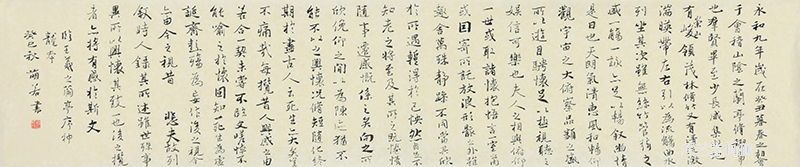 永和九年歲在癸丑暮春之初會
于會稽山陰之蘭亭脩禊事
也群賢畢至少長咸集此地
有崇山峻領茂林脩竹又有清流激
湍暎帶左右引以為流觴曲水
列坐其次雖無絲竹管絃之
盛一觴一詠亦足以暢敘幽情
是日也天朗氣清惠風和暢仰
觀宇宙之大俯察品類之盛
所以遊目騁懷足以極視聽之
娛信可樂也夫人之相與俯仰
一世或取諸懷抱悟言一室之內
或因寄所託放浪形骸之外雖
趣舍萬殊靜躁不同當其欣
於所遇輒得於己怏然自足不
知老之將至及其所之既惓情
隨事遷感慨係之矣向之所
欣俛仰之間以為陳迹猶不
能不以之興懷況脩短隨化終
期於盡古人云死生亦大矣豈
不痛哉每攬昔人興感之由
若合一契未嘗不臨文嗟悼不
能喻之於懷固知一死生為虛
誕齊彭殤為妄作後之視今
亦由今之視昔 悲夫故列
敘時人錄其所述雖世殊事
異所以興懷其致一也後之攬
者亦將有感於斯文
臨王羲之蘭亭序神
龍本
癸巳秋 書